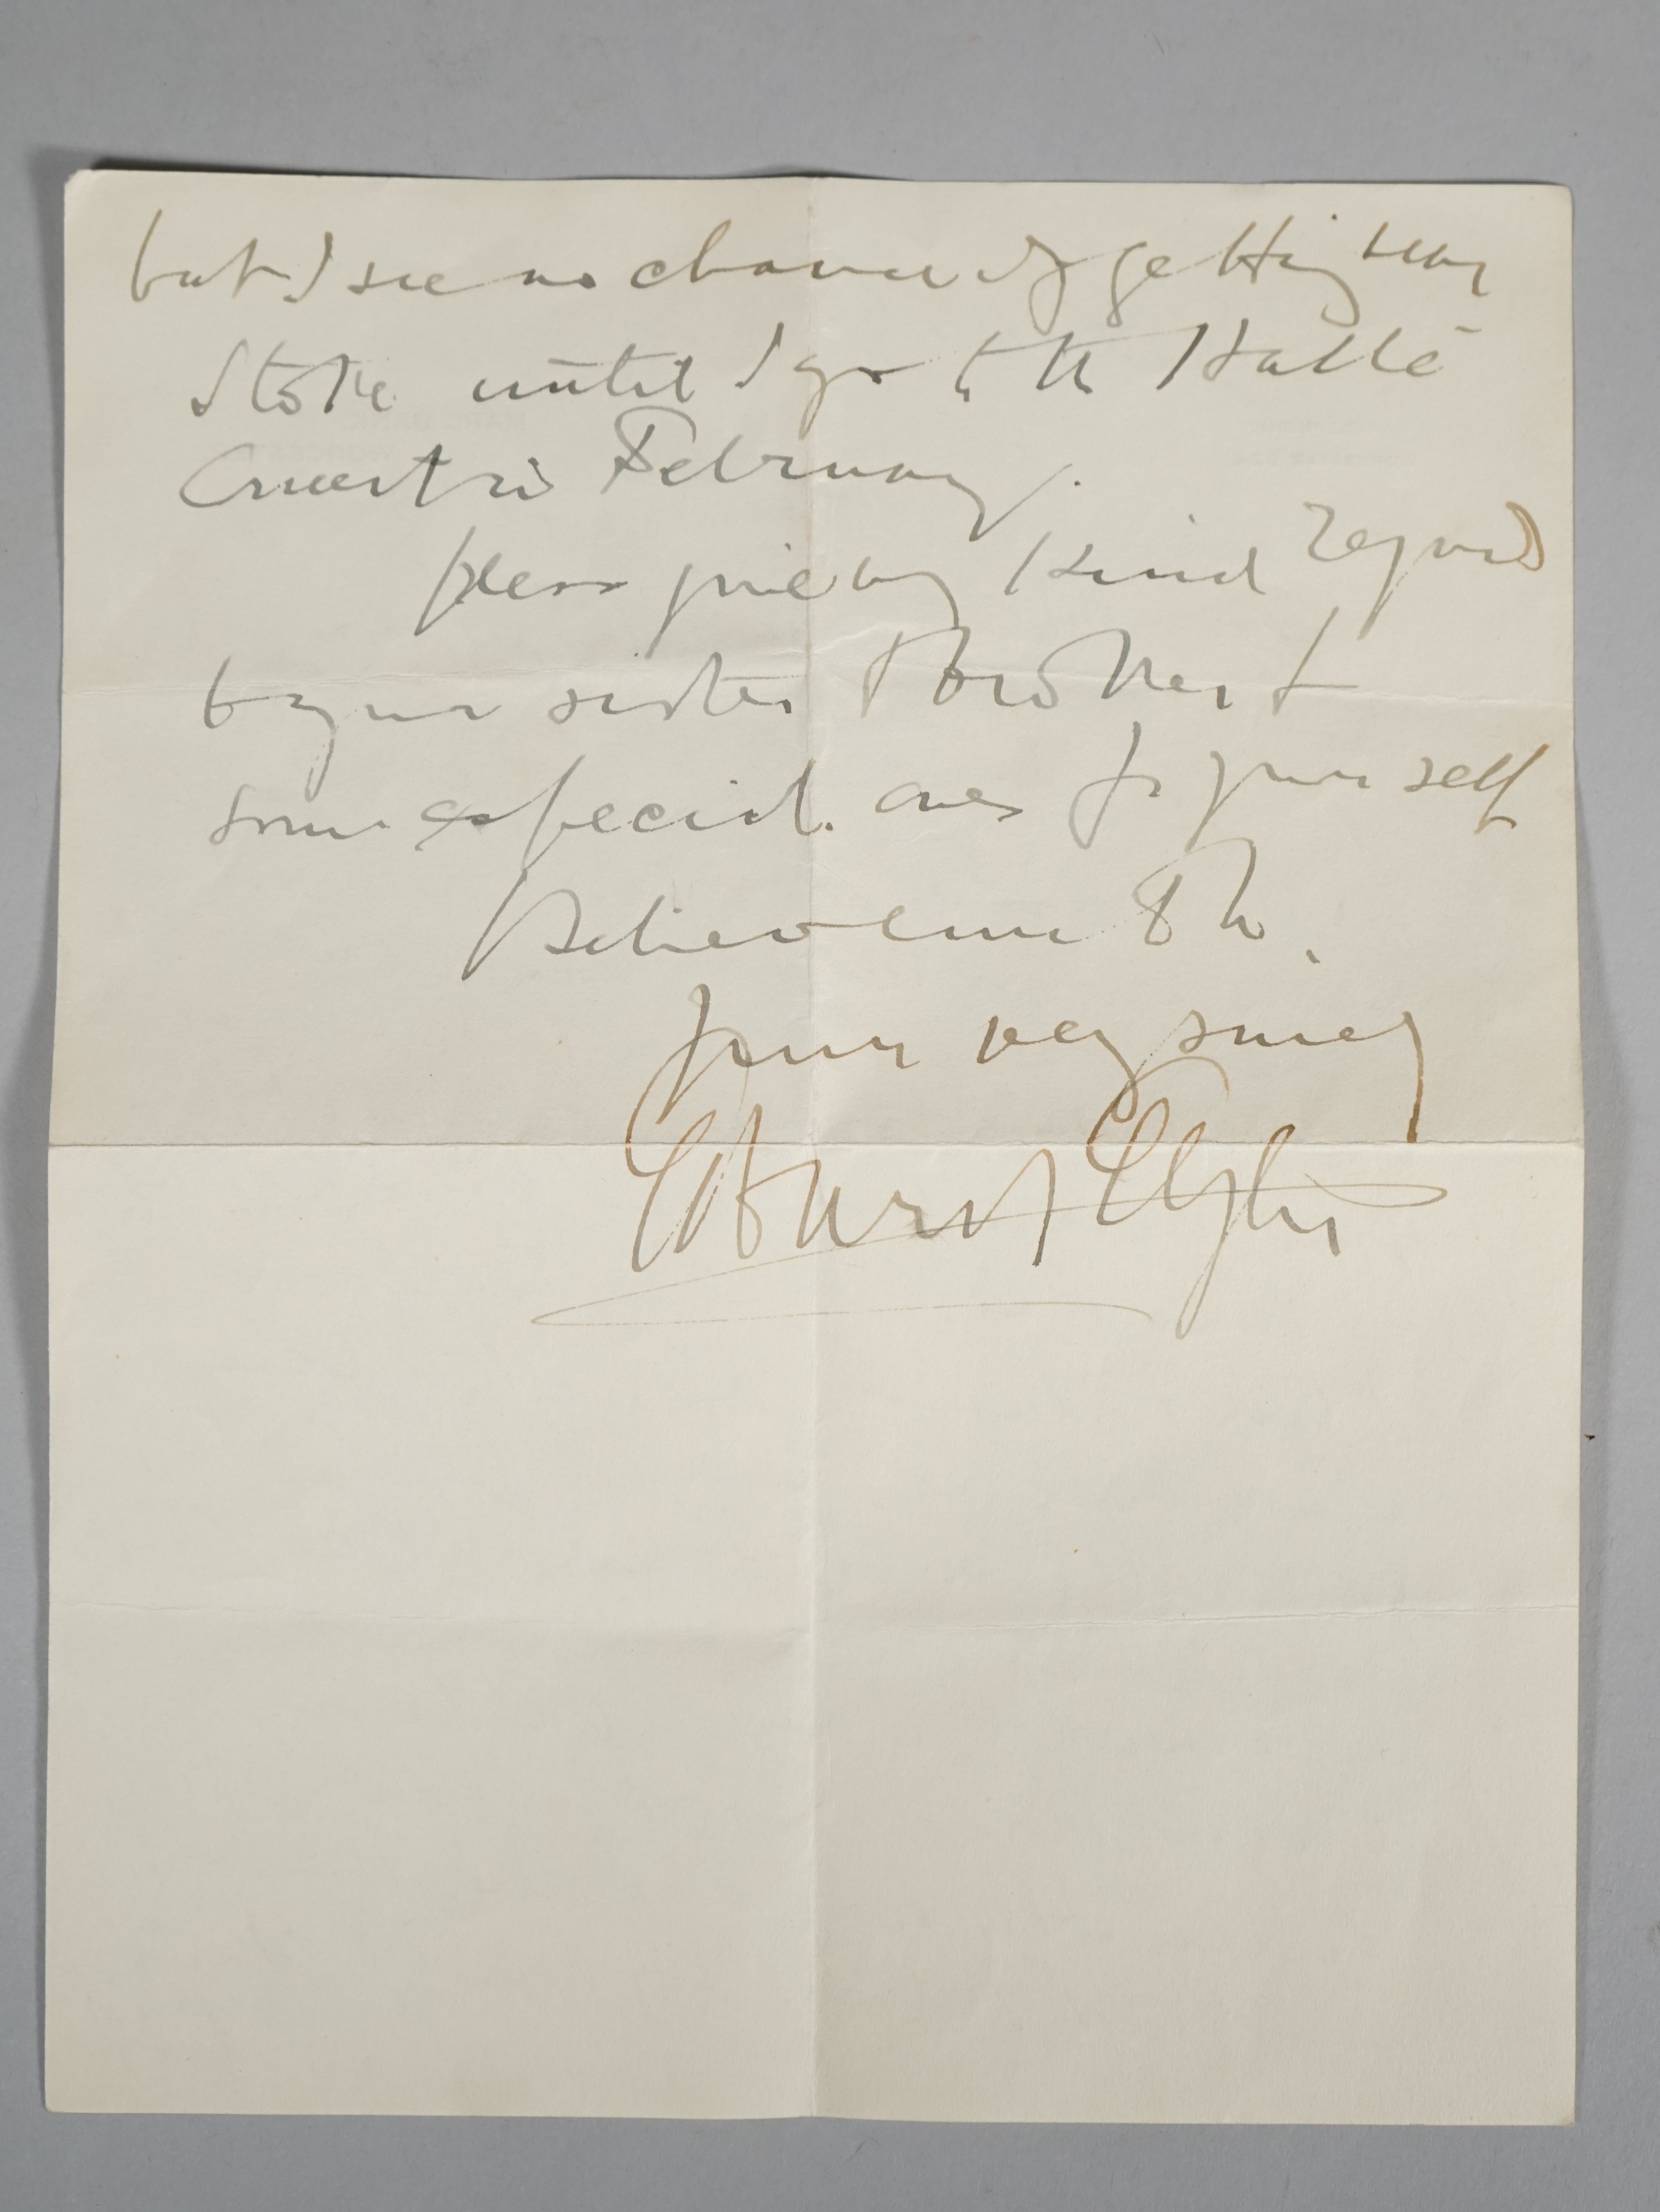 but I see no chance of getting near
Stoke until I go to the Hallé
Concert in February.
Please give my kind regards
to your sister & brother &
some especial ones for yourself
Believe me to be,
Yours very sincerely
Edward Elgar